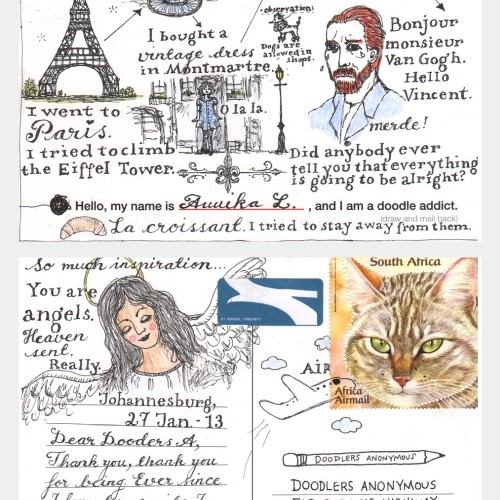 observation:
Dogs are
allowed in
shops.
I bought a
vintage dress
in Montmartre.
O la la.
Bonjour
monsieur
Van Gogh.
Hello
Vincent.
merde!
I went to
Paris.
I tried to climb
the Eiffel Tower.
Did anybody ever
tell you that everything
is going to be alright?
Hello, my name is Annika L. , and I am a doodle addict.
(draw and mail back)
La croissant. I tried to stay away from them.
So much inspiration...
You are
angels.
Heaven
sent.
Really.
Johannesburg,
27 Jan - 13
Dear Dooders A,
Thank you, thank you
for being Ever since
South Africa
Africa
Airmail
AIR
DOODLERS ANONYMOUS
DOODLERS ANONYMOUS